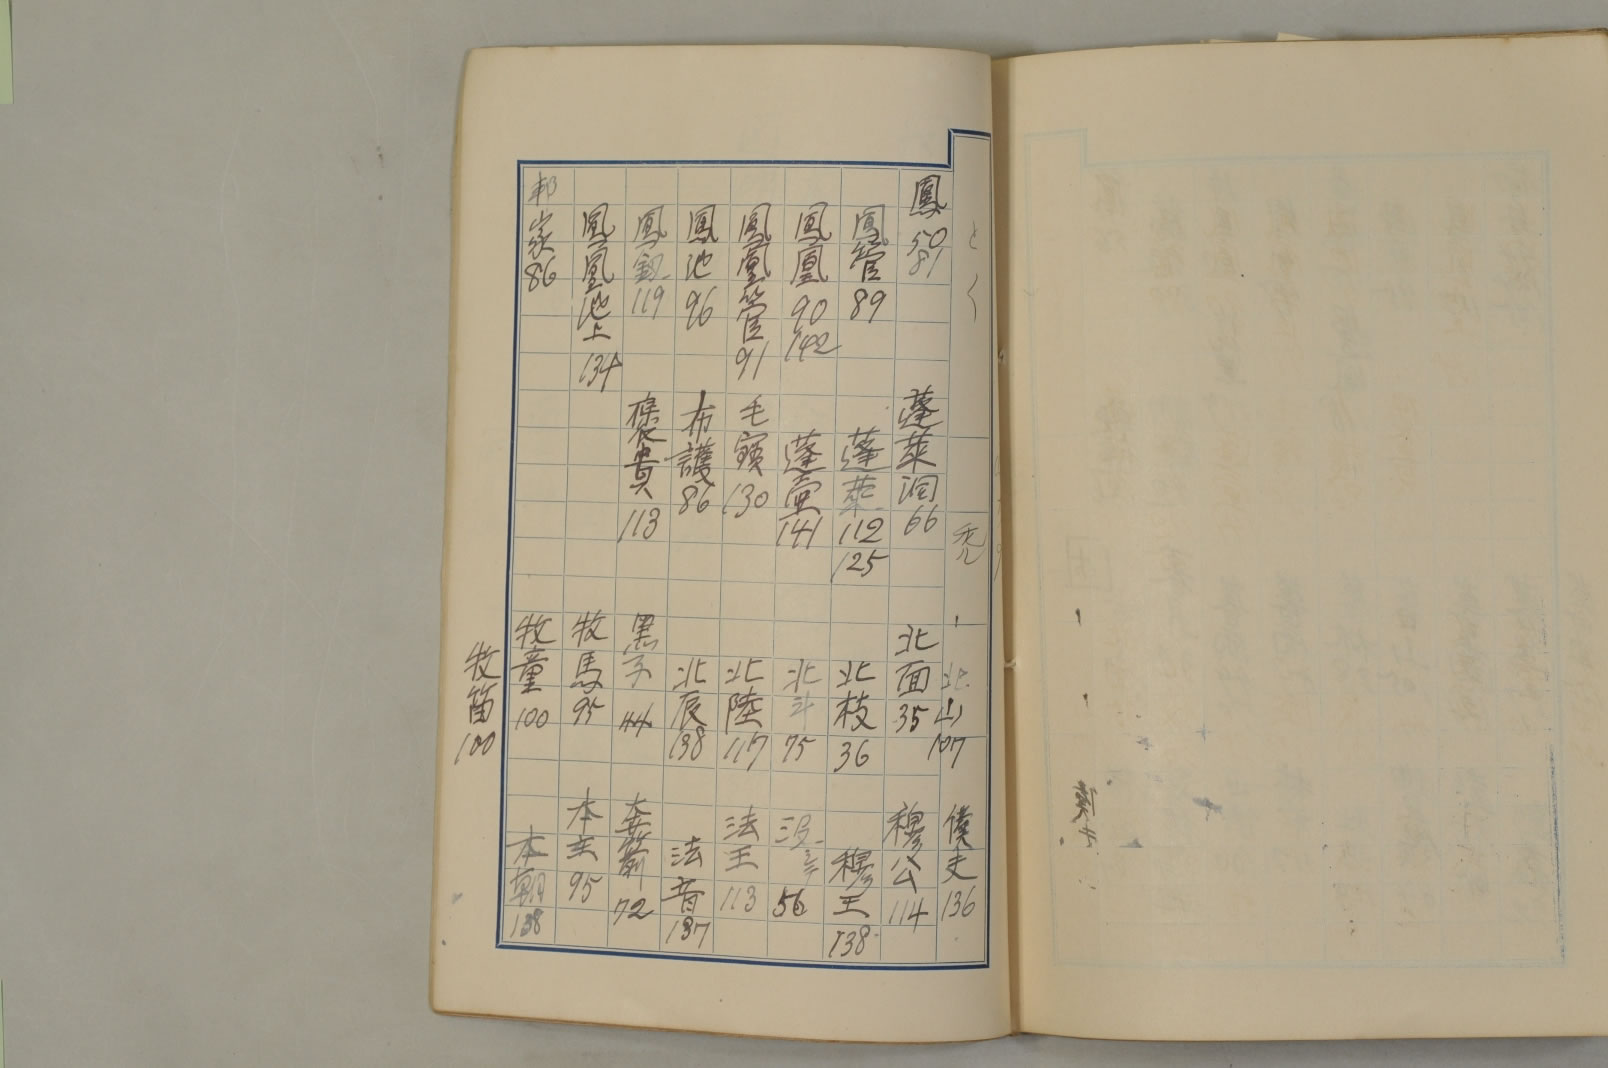 鳳 50 81
鳳管 89
鳳凰 90 142
鳳凰管 91
鳳池 96
鳳釵 119
鳳凰池上 134
邦家 86
蓬莱洞 66
蓬莱 112 125
蓬壷 141
毛寳 130
布護 86
襃貴 113
禿
北山 107
北面 35
北枝 36
北斗 75
北陸 117
北辰 138
黒子 44
牧馬 95
牧童 100
牧笛 100
僕夫 136
穆公 114
穆王 138
56
法王 113
法音 137
72
本主 95
本朝 138